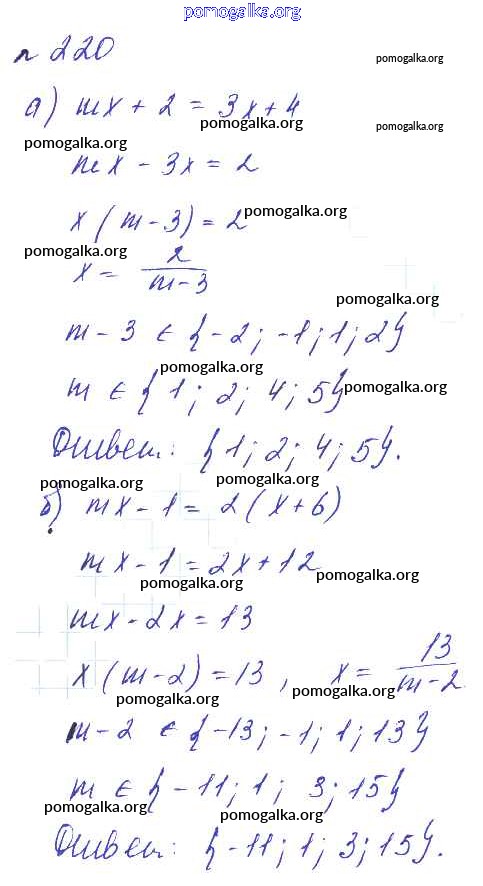 pomogalka.org
№ 220
pomogalka.org
а) mx + 2 = 3x + 4
pomogalka.org pomogalka.org
pomogalka.org
mx - 3x = 2
x (m - 3) = 2 pomogalka.org
pomogalka.org
x = 2/(m - 3)
pomogalka.org
m - 3 ∈ {-2; -1; 1; 2}
pomogalka.org
m ∈ {1; 2; 4; 5} pomogalka.org
Ответ: {1; 2; 4; 5}.
pomogalka.org pomogalka.org
б) mx - 1 = 2(x + 6)
mx - 1 = 2x + 12
pomogalka.org pomogalka.org
mx - 2x = 13
x (m - 2) = 13, x = 13/(m - 2)
pomogalka.org pomogalka.org
m - 2 ∈ {-13; -1; 1; 13}
m ∈ {-11; 1; 3; 15}
pomogalka.org pomogalka.org
Ответ: {-11; 1; 3; 15}.